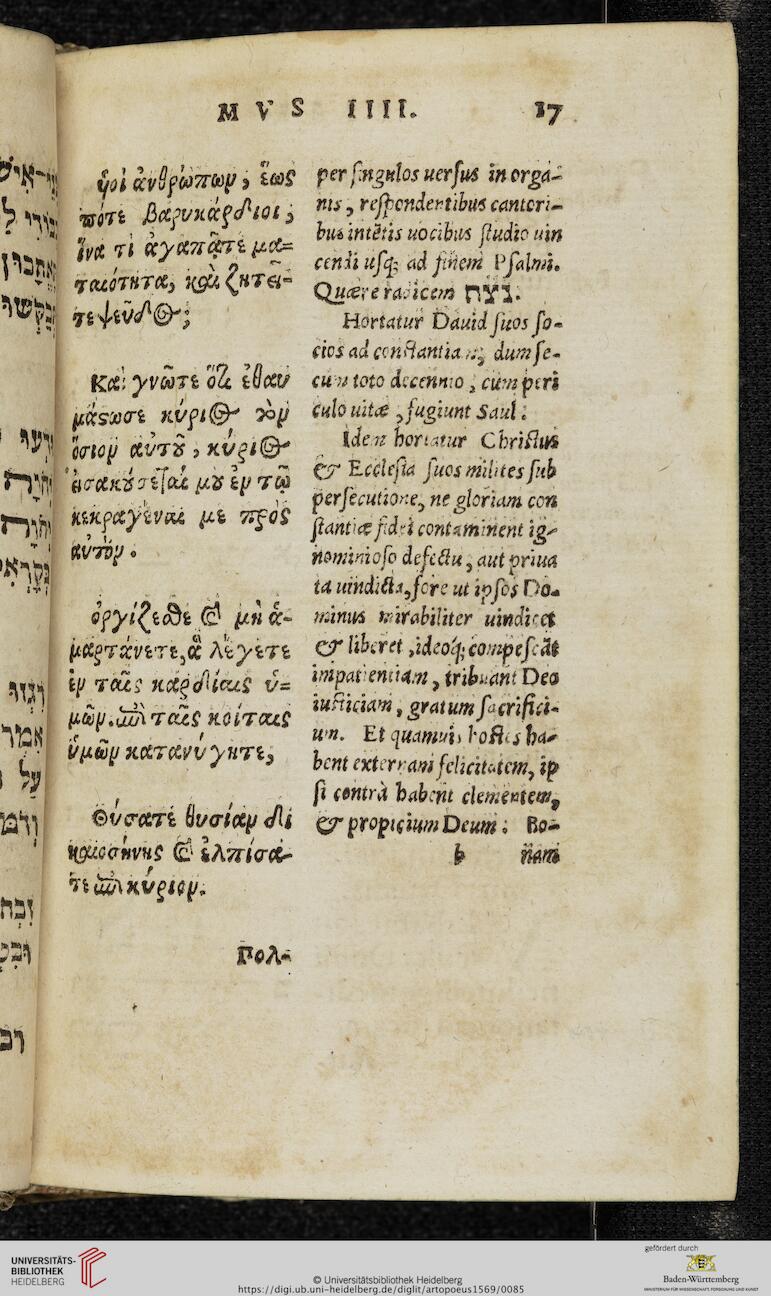 MVS IIII. 17
ὑοὶ ἀνθρώπωμ, ἕως
πότε βαρυκάρδιοι;
ἵνα τί ἀγαπᾶτε μα=
ταιότητα, καὶ ζητεῖ=
τε ψεῦδος;
Καὶ γνῶτε ὅτι ἐθαυ
μάςωσε κύριος τὸμ
ὅσιομ αὐτοῦ, κύριος
εἰσακούσεταί μου ἐμ τῷ
κεκραγέναι με πρὸς
αὐτόμ.
ὀργίζεσθε καὶ μὴ ἁ-
μαρτάνετε, ἃ λέγετε
ἐμ ταῖς καρδίαις ὑ=
μῶμ. ἐπὶ ταῖς κοίταις
ὑμῶμ κατανύγητε,
Θύσατε θυσίαμ δι
καιοσήνης καὶ ἐλπίσα-
τε ἐπὶ κύριομ.
Πολ-
per singulos uersus in orga-
nis, respondentibus cantori-
bus intētis uocibus studio uin
cendi usq; ad finem Psalmi.
Quære radicem נצח.
Hortatur Dauid suos so-
cios ad constantiam, dum se-
cum toto decennio, cum peri
culo uitæ, fugiunt Saul.
Idem hortatur Christus
& Ecclesia suos milites sub
persecutione, ne gloriam con
stantiæ fidei contaminent ig-
nominioso defectu, aut priua
ta uindicta, fore ut ipsos Do-
minus mirabiliter uindicet
& liberet, ideoq́; compescāt
impatientiam, tribuant Deo
iusticiam, gratum sacrifici-
um. Et quamuis hostes ha-
bent externam felicitatem, ip
si contrà habent clementem,
& propicium Deum. Bo-
b nam
UNIVERSITÄTS-
BIBLIOTHEK
HEIDELBERG
© Universitätsbibliothek Heidelberg
https://digi.ub.uni-heidelberg.de/diglit/artopoeus1569/0085
gefördert durch
Baden-Württemberg
MINISTERIUM FÜR WISSENSCHAFT, FORSCHUNG UND KUNST